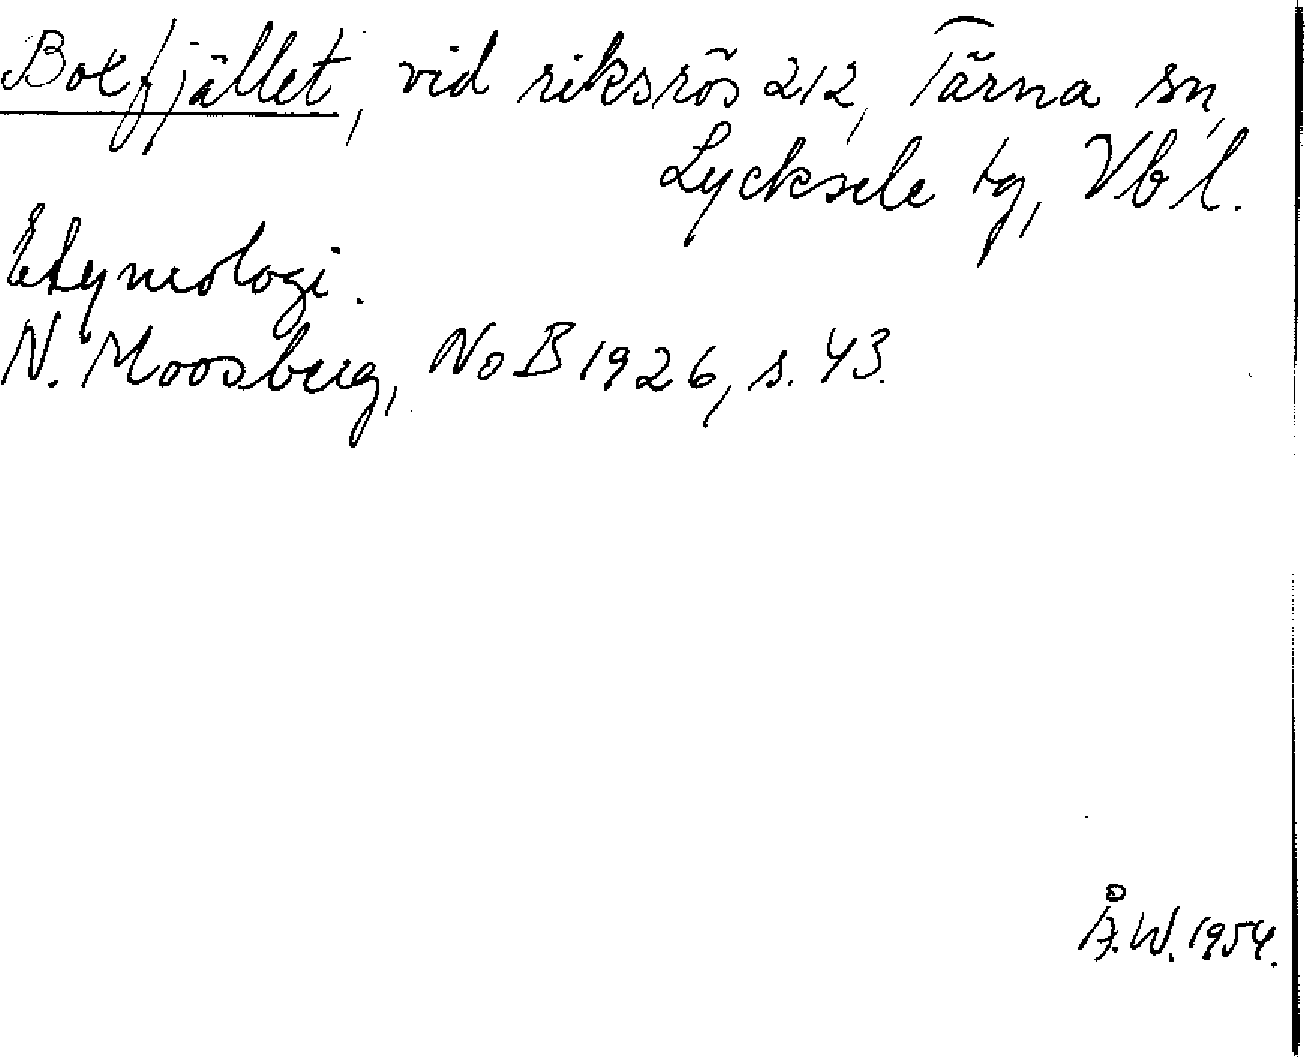 Boefjället, vid riksrös 212, Tärna sn,
Lycksele tg, Vb l.
Etymologi.
N. Moosberg, NoB 1926, s. 43.
Å.W. 1954.